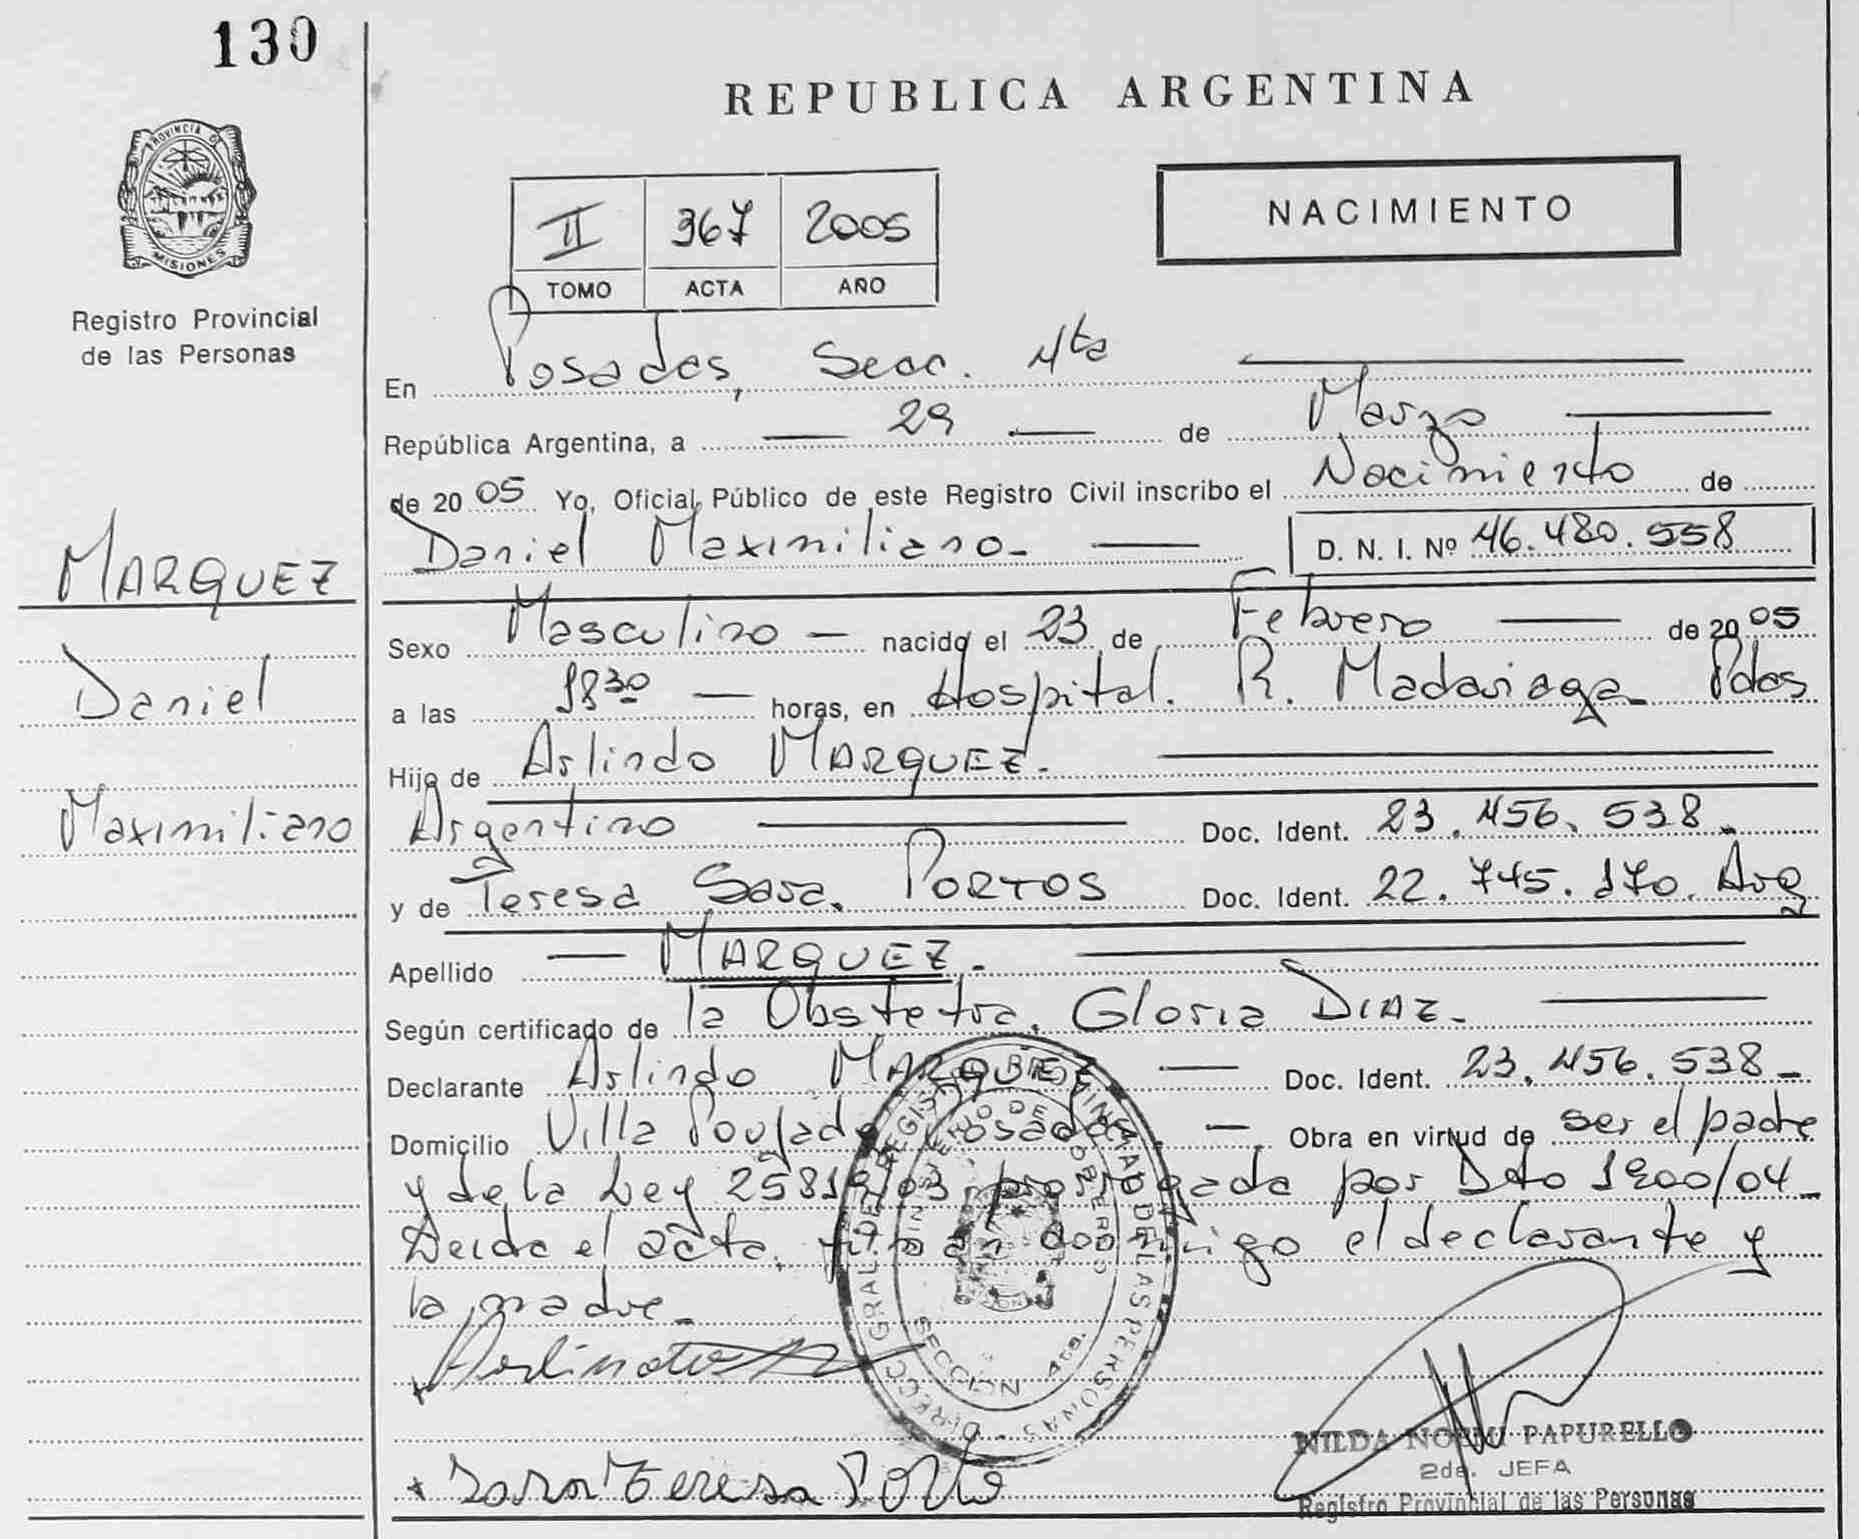 130
REPUBLICA ARGENTINA
PROVINCIA D
MISIONES
Registro Provincial
de las Personas
II 367 2005
TOMO ACTA AÑO
NACIMIENTO
En Posadas, Secc. 4ta
República Argentina, a 29 de Marzo
de 20 05 Yo, Oficial Público de este Registro Civil inscribo el Nacimiento de
Daniel Maximiliano- D. N. I. Nº 46.480.558
MARQUEZ
Daniel
Maximiliano
Sexo Masculino nacido el 23 de Febrero de 20 05
a las 18 30 horas, en Hospital. R. Madariaga- Pdas
Hijo de Arlindo MARQUEZ.
Argentino Doc. Ident. 23.456.538.
y de Teresa Sara. PORTOS Doc. Ident. 22.745.170. Arg
Apellido MARQUEZ.
Según certificado de la Obstetra. Gloria DIAZ-
Declarante Arlindo MARQUEZ Doc. Ident. 23.456.538-
Domicilio Villa Poujade Posadas. Obra en virtud de ser el padre
y de la Ley 25819/03 prorrogada por Dto 1900/04-
Leida el acta, firman conmigo el declarante y
la madre-
DIRECC. GRAL. DEL REGISTRO PROVINCIAL DE LAS PERSONAS
MINISTERIO DE GOBIERNO
SECCION 4ta.
Sara Teresa Porto
NILDA NOEMI PAPURELLO
2da. JEFA
Registro Provincial de las Personas